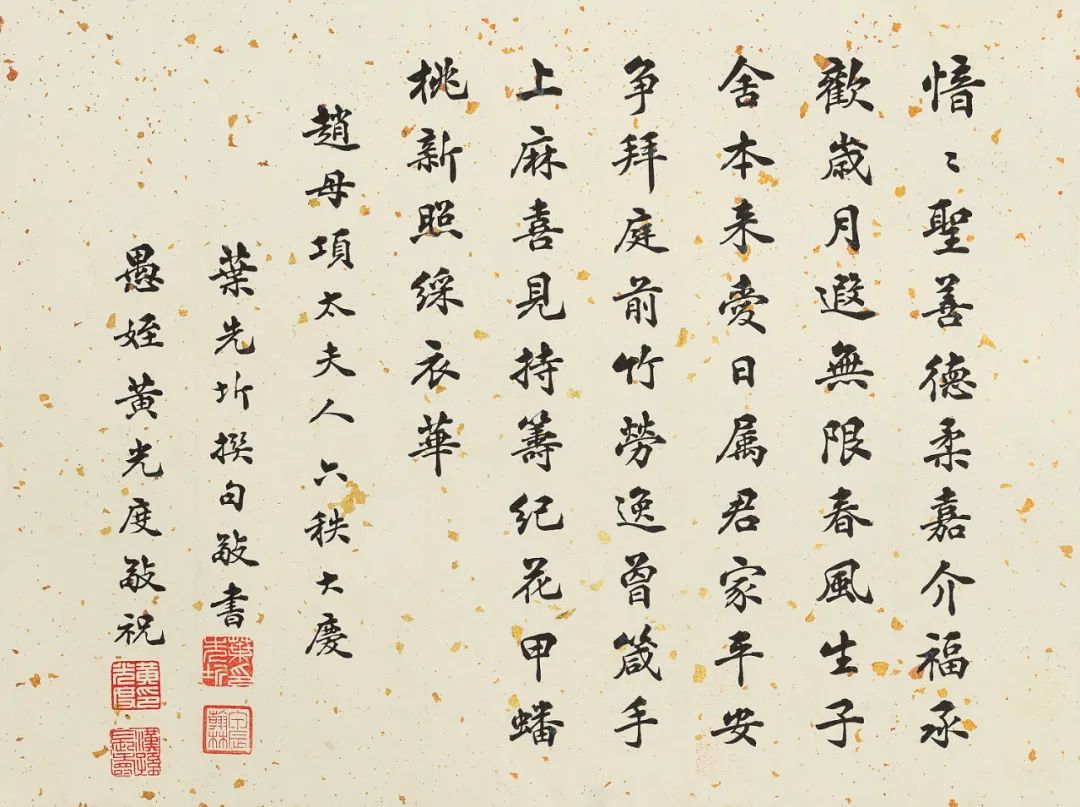 愔〻聖善德柔嘉介福承
歡歲月遐無限春風生子
舍本来愛日属君家平安
争拜庭前竹勞逸曾箴手
上麻喜見持籌紀花甲蟠
桃新照綵衣華
趙母項太夫人六秩大慶
葉先圻撰句敬書
愚姪黃光度敬祝